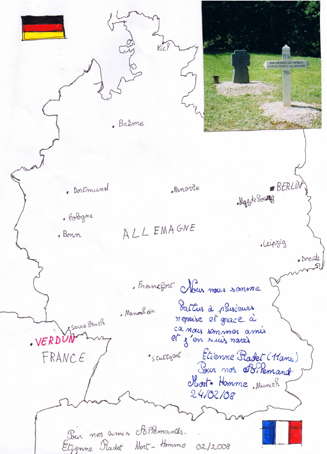 Kiel
Brême
Dortmund
Hanovre
BERLIN
Cologne
Bonn
ALLEMAGNE
Leipzig
Dresde
Francfort
Nous nous somme
battus à plusieurs
reprise et grace à
ça nous sommes amis
et j'en suis ravis
Mannheim
Sarrebruck
VERDUN
FRANCE
Stuttgart
Etienne Radet (Hans)
Pour nos Allemand
Mort-Homme
Munich
24/02/08
Pour nos amis Allemands.
Etienne Radet Mort-Homme 02/2008